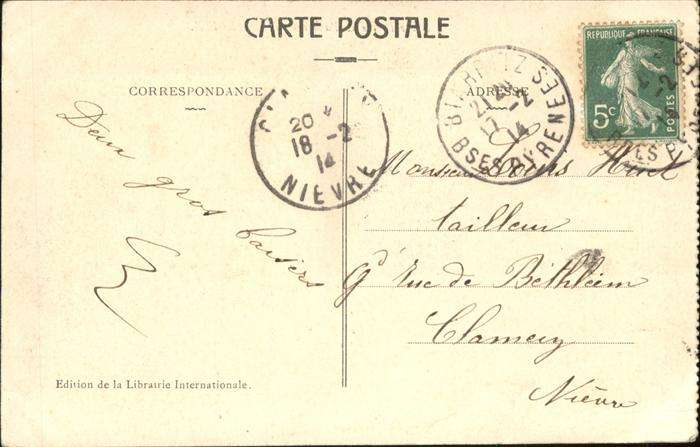 CARTE POSTALE
CORRESPONDANCE
ADRESSE
REPUBLIQUE FRANÇAISE
5c
POSTES
BIARRITZ
17 -2
14
BSES PYRENEES
20
18 -2
14
NIEVRE
Deux gros baisers
Monsieur Louis
tailleur
Gd rue de Bethléem
Clamecy
Nièvre
Edition de la Librairie Internationale.